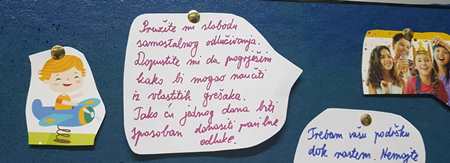 Pružite mi slobodu
samostalnog odlučivanja.
Dopustite mi da pogriješim
kako bi mogao naučiti
iz vlastitih grešaka.
Tako ću jednog dana biti
sposoban donositi pravilne
odluke.
Trebam vašu podršku
dok rastem. Nemojte